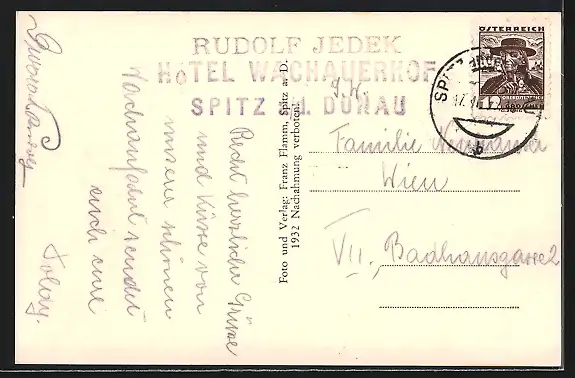 RUDOLF JEDEK
HOTEL WACHAUERHOF
SPITZ A. D. DONAU
ÖSTERREICH
SPITZ
b
Foto und Verlag: Franz Flamm, Spitz a. D.
1932 Nachahmung verboten!
Recht herzliche Grüsse
und Küsse von
unserer schönen
Wachaufahrt sendet
euch eure
Poldy.
Familie
Wien
VII., Badhausgasse 2